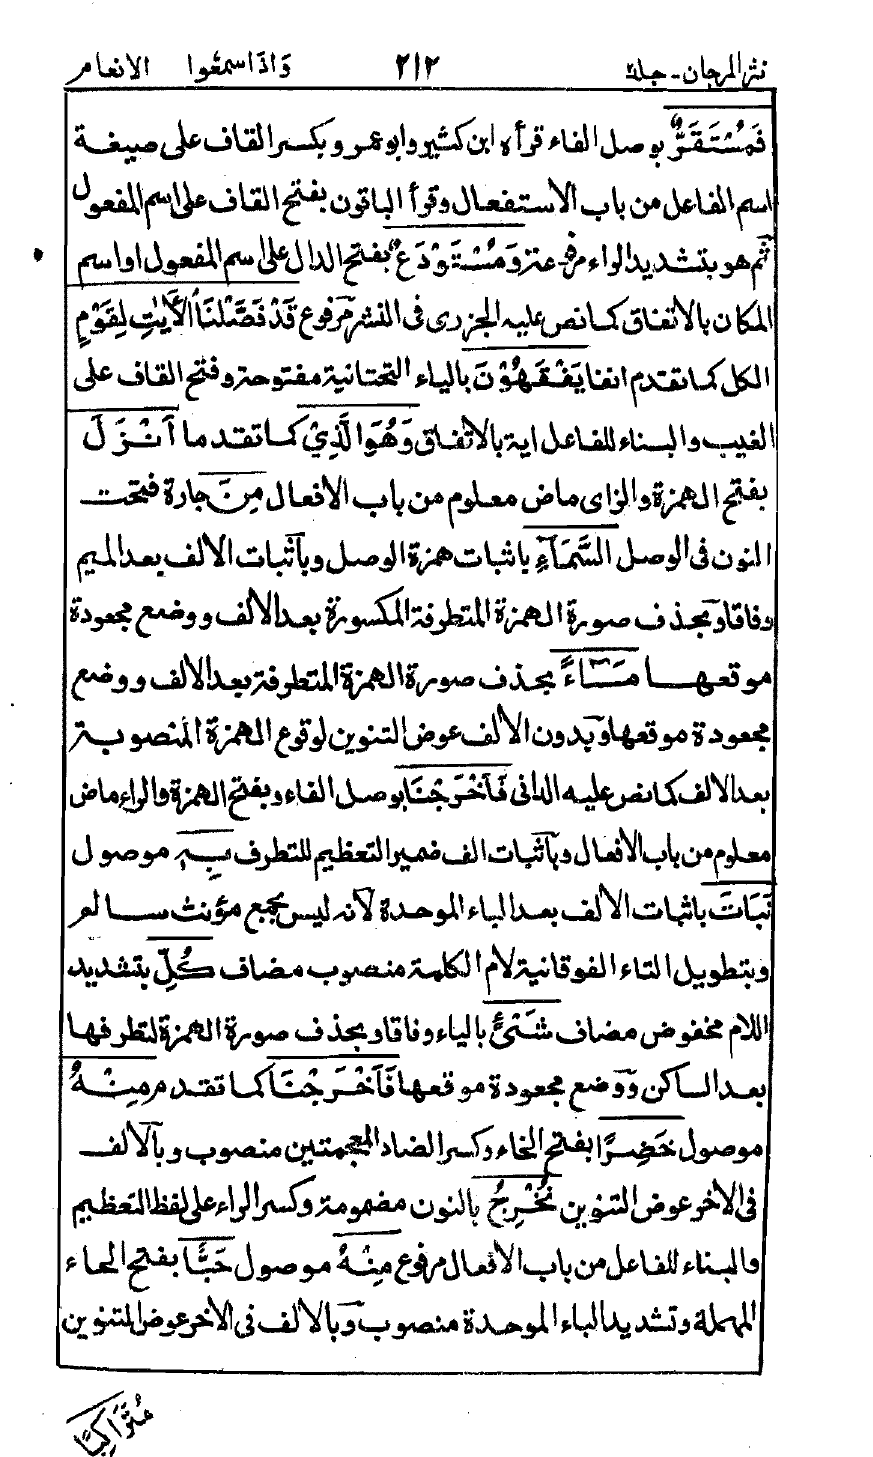 نثر المرجان - جلد ٢ ٢١٢ وَاذَا سمعُوا الانعام
فَمُسْتَقَرٌّ بوصل الفاء قرأه ابن كثير وابو عمرو بكسر القاف على صيغة
اسم الفاعل من باب الاستفعال وقرأ الباقون بفتح القاف على اسم المفعول
ثم هو بتشديد الراء مرفوعة وَمُسْتَوْدَعٌ بفتح الدال على اسم المفعول او اسم
المكان بالاتفاق كما نص عليه الجزرى فى النشر مرفوع قَدْ فَصَّلْنَا الْأٰيٰتِ لِقَوْمٍ
الكل كما تقدم انفا يَفْقَهُوْنَ بالياء التحتانية مفتوحة وفتح القاف على
الغيب والبناء للفاعل اية بالاتفاق وَهُوَ الَّذِيْ كما تقدم ما اَنْزَلَ
بفتح الهمزة والزاى ماض معلوم من باب الافعال مِنَ جارة فتحت
النون فى الوصل السَّمَآءِ باثبات همزة الوصل وباثبات الالف بعد الميم
وفاقا وبحذف صورة الهمزة المتطرفة المكسورة بعد الالف ووضع مجعودة
موقعها مَآءً بحذف صورة الهمزة المتطرفة بعد الالف ووضع
مجعودة موقعها وبدون الالف عوض التنوين لوقوع الهمزة المنصوبة
بعد الالف كما نص عليه الدانى فَاَخْرَجْنَا بوصل الفاء وبفتح الهمزة والراء ماض
معلوم من باب الافعال وباثبات الف ضمير التعظيم للتطرف بِهٖ موصول
نَبَاتَ باثبات الالف بعد الباء الموحدة لانه ليس بجمع مؤنث سالم
وبتطويل التاء الفوقانية لام الكلمة منصوب مضاف كُلِّ بتشديد
اللام مخفوض مضاف شَيْءٍ بالياء وفاقا وبحذف صورة الهمزة لتطرفها
بعد الساكن ووضع مجعودة موقعها فَاَخْرَجْنَا كما تقدم مِنْهُ
موصول خَضِرًا بفتح الخاء وكسر الضاد المعجمتين منصوب وبالالف
فى الاخر عوض التنوين نُخْرِجُ بالنون مضمومة وكسر الراء على لفظ التعظيم
والبناء للفاعل من باب الافعال مرفوع مِنْهُ موصول حَبًّا بفتح الحاء
المهملة وتشديد الباء الموحدة منصوب وبالالف فى الاخر عوض التنوين
مُتَرَاكِبًا